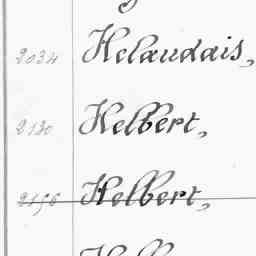 2034 Helaudais,
2130 Helbert,
2156 Helbert,